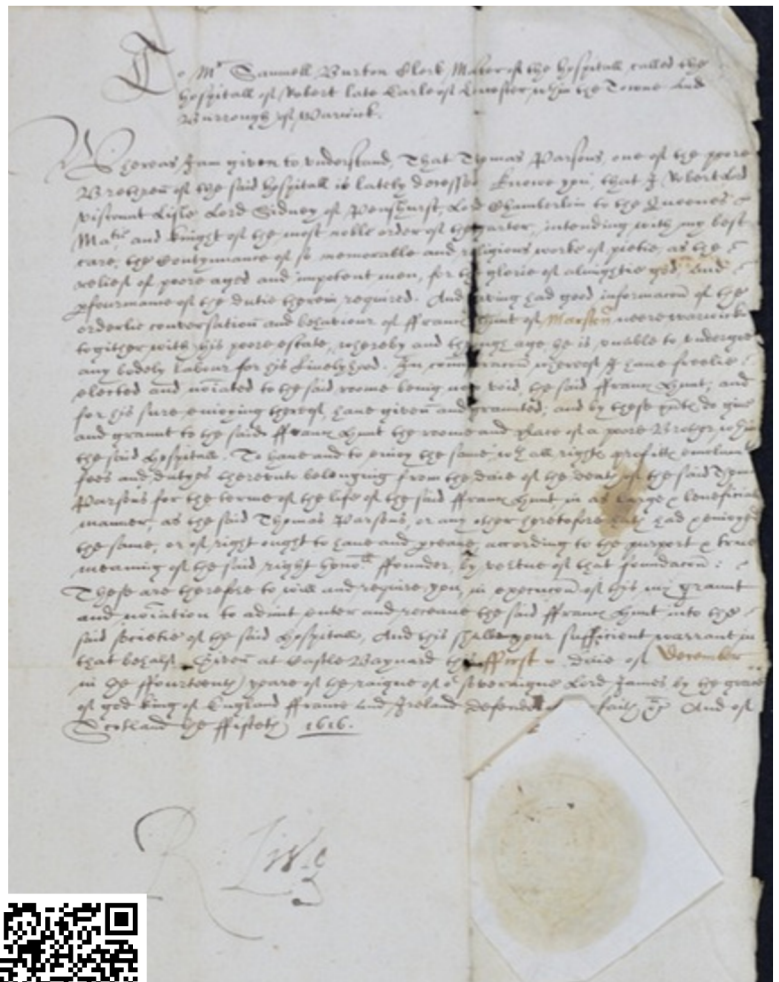 To Mr Samuell Burton Clerk Master of the hospitall called the
hospitall of Robert late Earle of Leicester wthin the Towne and
Burrough of Warwick.
Whereas I am given to vnderstand, That Thomas Parsons, one of the poore
Brethren of the said hospitall is lately deceassed. Knowe you, that I Robert Lo:
Viscount Lisle, Lord Sidney of Penshurst, Lord Chamberlin to the Queenes
Matie and knight of the most noble order of the garter, intending with my best
care, the contynuance of so memorable and religious worke of pietie, as the
relief of poore aged and impotent men, for the glorie of almightie god, And
pfourmance of the dutie therein required. And having had good informacon of the
orderlie conversation and behaviour of ffraunc Hunt of Marston neere warwick
togither with his poore estate, whereby and through age he is vnable to vndergoe
any bodely labour for his livelyhod. In consideracon whereof I have freelie
elected and noiated to the said roome being now void, the said ffraunc Hunt, and
for his sure enioying thereof, have given and graunted, and by these pnts do give
and graunt to the said ffraunc Hunt the roome and place of a poore Brother wthin
the said Hospitall. To have and to enioy the same wth all rights profitts emolumts
fees and dutyes thereunto belonging from the daie of the death of the said Thomas
Parsons for the terme of the life of the said ffraunc Hunt, in as large & beneficiall
manner, as the said Thomas Parsons, or any other heretofore hath had & enioyed
the same, or of right ought to have and pceave, according to the purport & true
meaning of the said right honoble ffounder, by vertue of that foundacon:
These are therefore to will and require you, in execucon of this my graunt
and noiation to admit enter and receave the said ffraunc Hunt into the
said societie of the said Hospitall, And this shalbe your sufficient warrant in
that behalf. Given at Castle Baynard the ffirst daie of December
in the ffourteenth yeare of the raigne of or soveraigne Lord James by the grace
of god king of England ffrance and Ireland defender of faith &c And of
Scotland the ffiftieth 1616.
R Lisle